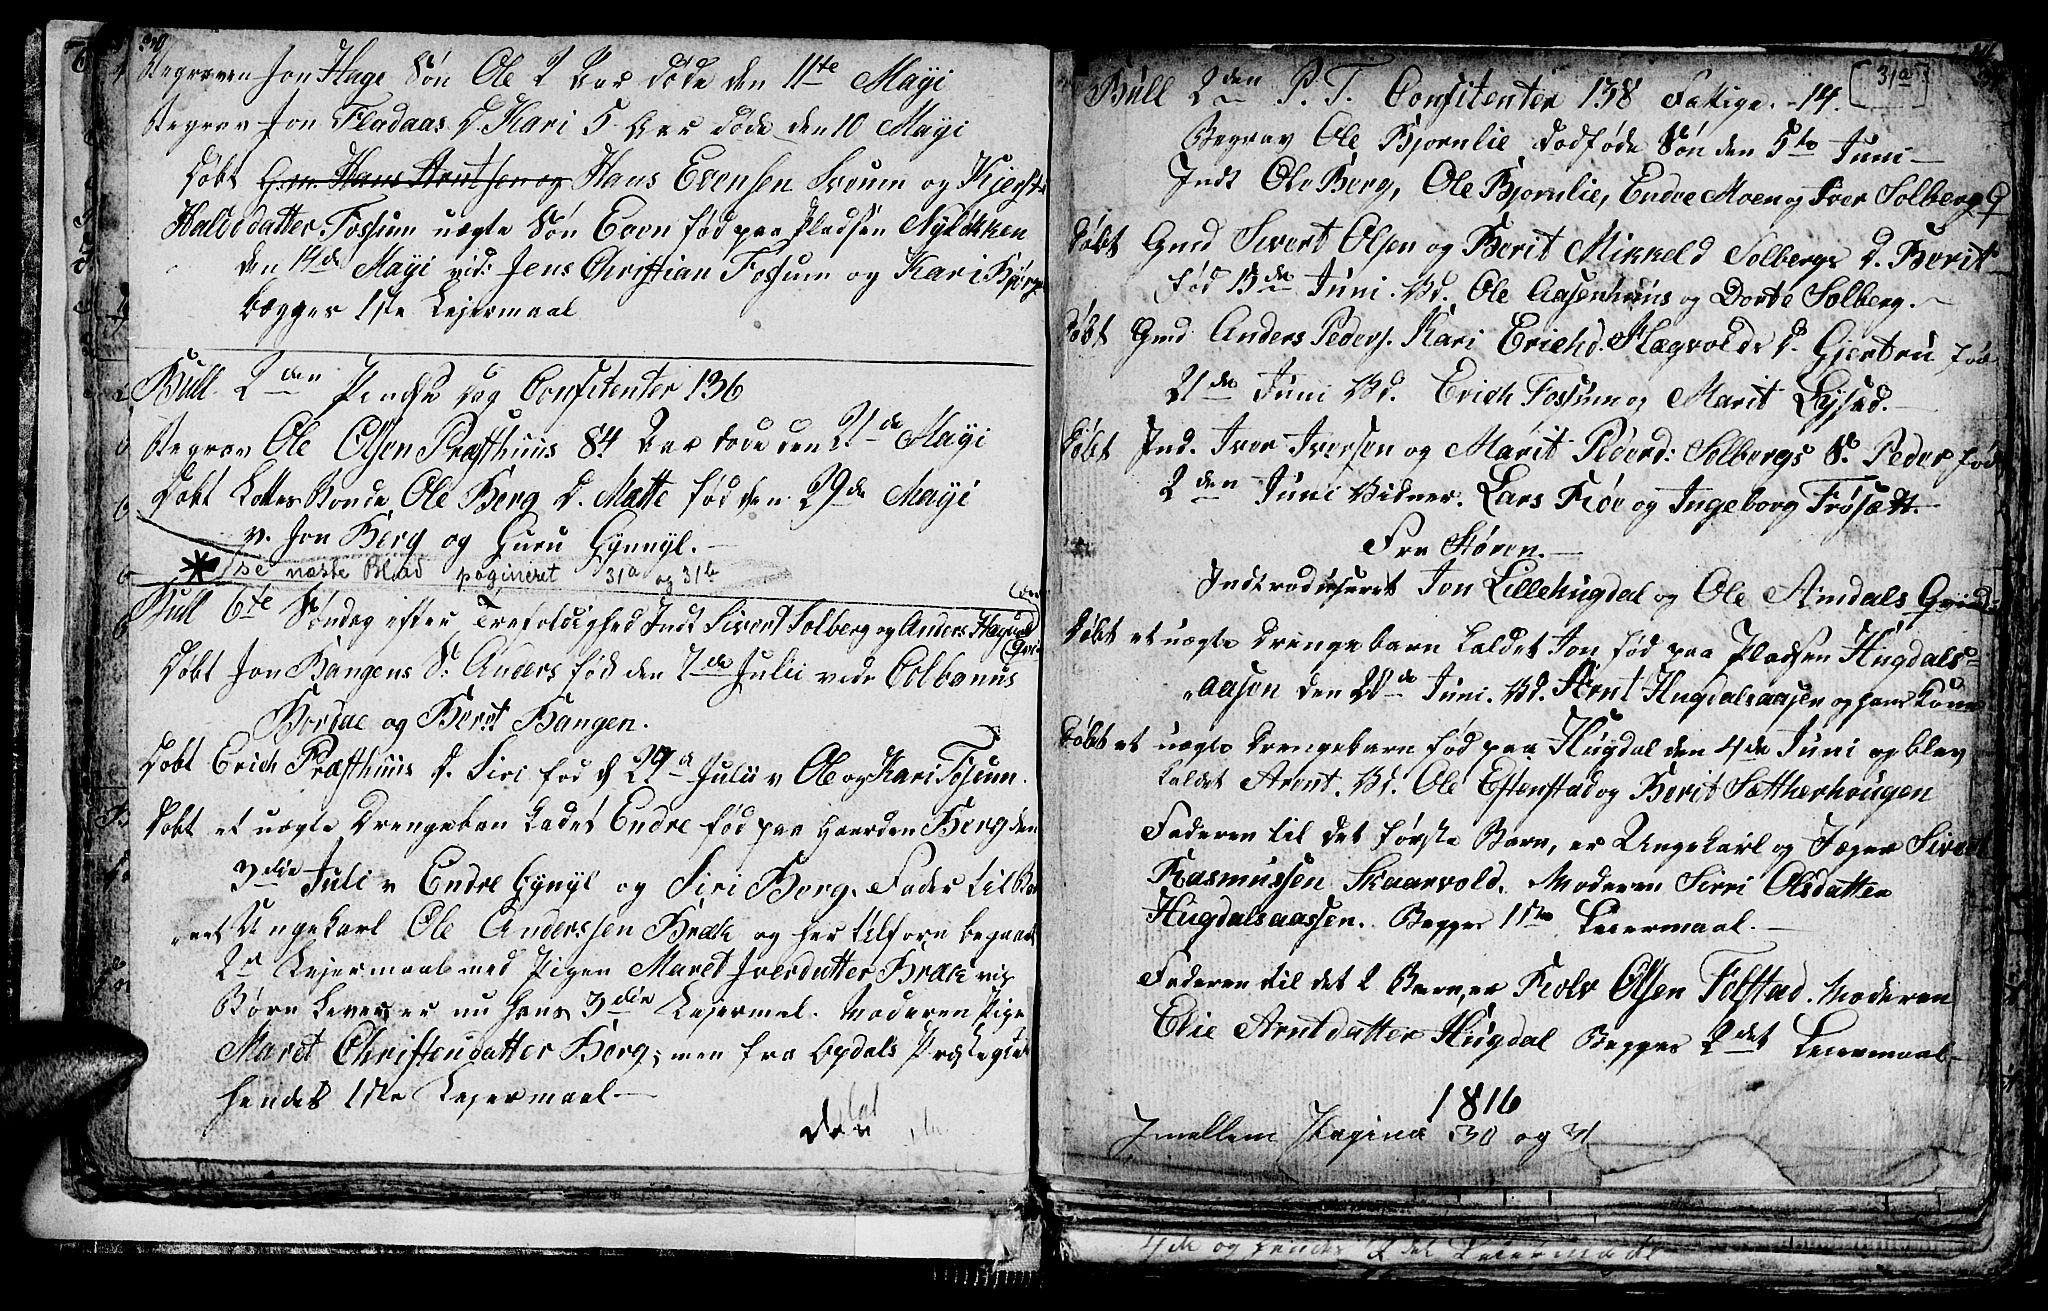 30
Begraven Jon Hage Søn Ole 2 Aar døde den 11te Mayi
Begrav Jon Fladaas D. Kari 5 Aar døde den 10 Mayi
Døbt Hans Evensen Soeum og Kjerst
Halvdatter Fossum uægte Søn Even fød paa Pladsen Nyløkken
den 14de Mayi vid: Jens Christian Fossum og Kari Bjørge
begges 1ste Lejermaal
Bull 2den Pindse Dag Confitenter 136
Begrav Ole Olsen Præsthuus 84 Aar døde den 21de Mayi
Døbt Ole Berg D. Matte fød den 29de Mayi
v. Jon Berg og Guru Gynnyl.
* / se næste Blad pagineret 31a og 31b
Bull 6te Søndag efter Trefoldighed Indt Sivert Solberg og Anders Hagvold
Døbt Jon Bangens S. Anders fød den 7de Julii vid: Colbanus
Bordal og Berit Bangen.
Døbt Erich Præsthuus D. Siri fød d 29 Julii v Ole og Kari Fossum.
Døbt et uægte Drengebarn kaldet Endre fød paa Gaarden Berg den
3die Juli v Endre Gynyl og Siri Berg. Fader til Bar
net Ungekarl Ole Anderssen Bræk og har tilforn begaaet
2 Lejermaal med Pigen Maret Iversdatter Bræk
Børn lever er nu hans 3die Lejermaal. Moderen Pige
Maret Christendatter Berg, men fra Opdals Præstegield
hendes 1ste Lejermaal
31a
Bull 2den P. T. Confitenter 138 Fattige 14.
Begrav Ole Bjornlie dødføde Søn den 5te Juni
Indt Ole Berg, Ole Bjornlie, Endre Moen og Iver Solberg
Døbt Gmd Sivert Olsen og Berit Mikkeld Solbergs D. Berit
fød Juni. Vd. Ole Aasenhuus og Dorte Solberg.
Døbt Gmd Anders Peders. Kari Erichd. Hagvolds D. Gjertru fød
21de Juni Vd. Erich Fossum og Marit Lysad.
Døbt Ind. Iver Iversen og Marit Pederd: Solbergs S. Peder fød
2den Juni Vidner. Lars Røe og Ingeborg Frøsætt.
Fra Støren.
Introduceret Jon Lillehugdal og Ole Amdals
Døbt et uægte Drengebarn kaldet Jon fød paa Pladsen Hugdals
aasen den Juni. Vd. Arnt Hugdalsaasen og hans Kone
Døbt et uægte Drengebarn fød paa Hugdal den 4de Juni og blev
kaldet Arent. Vd. Ole Estenstad og Berit Sættherhougen
Faderen til det første Barn, er Ungekarl og Jæger Sivert
Rasmussen Skaarvold. Moderen Sirri Olsdatter
Hugdalsaassen. Begges 1ste Leiermaal.
Faderen til det 2 Barn, er Rolv Olsen Folstad. Moderen
Elie Arntdatter Hugdal Begges 2det Leiermaal
1816
Imellem Pagina 30 og 31
4de og hendes 2det Leiermaal